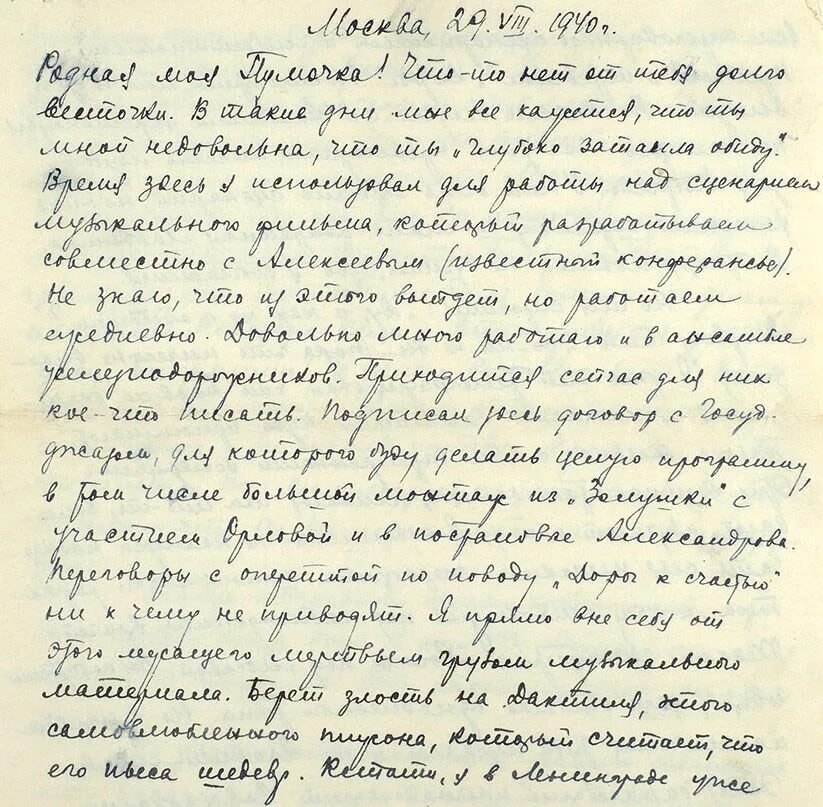 Москва, 29.VIII.1940г.
Родная моя Пумочка! Что-то нет от тебя долго
весточки. В такие дни мне все кажется, что ты
мной недовольна, что ты „глубоко затаила обиду".
Время здесь я использовал для работы над сценарием
музыкального фильма, который разрабатываем
совместно с Алексеевым (известный конферансье).
Не знаю, что из этого выйдет, но работаем
ежедневно. Довольно много работаю и в ансамбле
железнодорожников. Приходится сейчас для них
кое-что писать. Подписал здесь договор с Госуд.
джазом, для которого буду делать целую программу,
в том числе большой монтаж из „Золушки" с
участием Орловой и в постановке Александрова.
Переговоры с опереттой по поводу „Дорог к счастью"
ни к чему не приводят. Я прямо вне себя от
этого лежащего мертвым грузом музыкального
материала. Берет злость на Дактиля, этого
самовлюбленного пижона, который считает, что
его пьеса шедевр. Кстати, я в Ленинграде уже